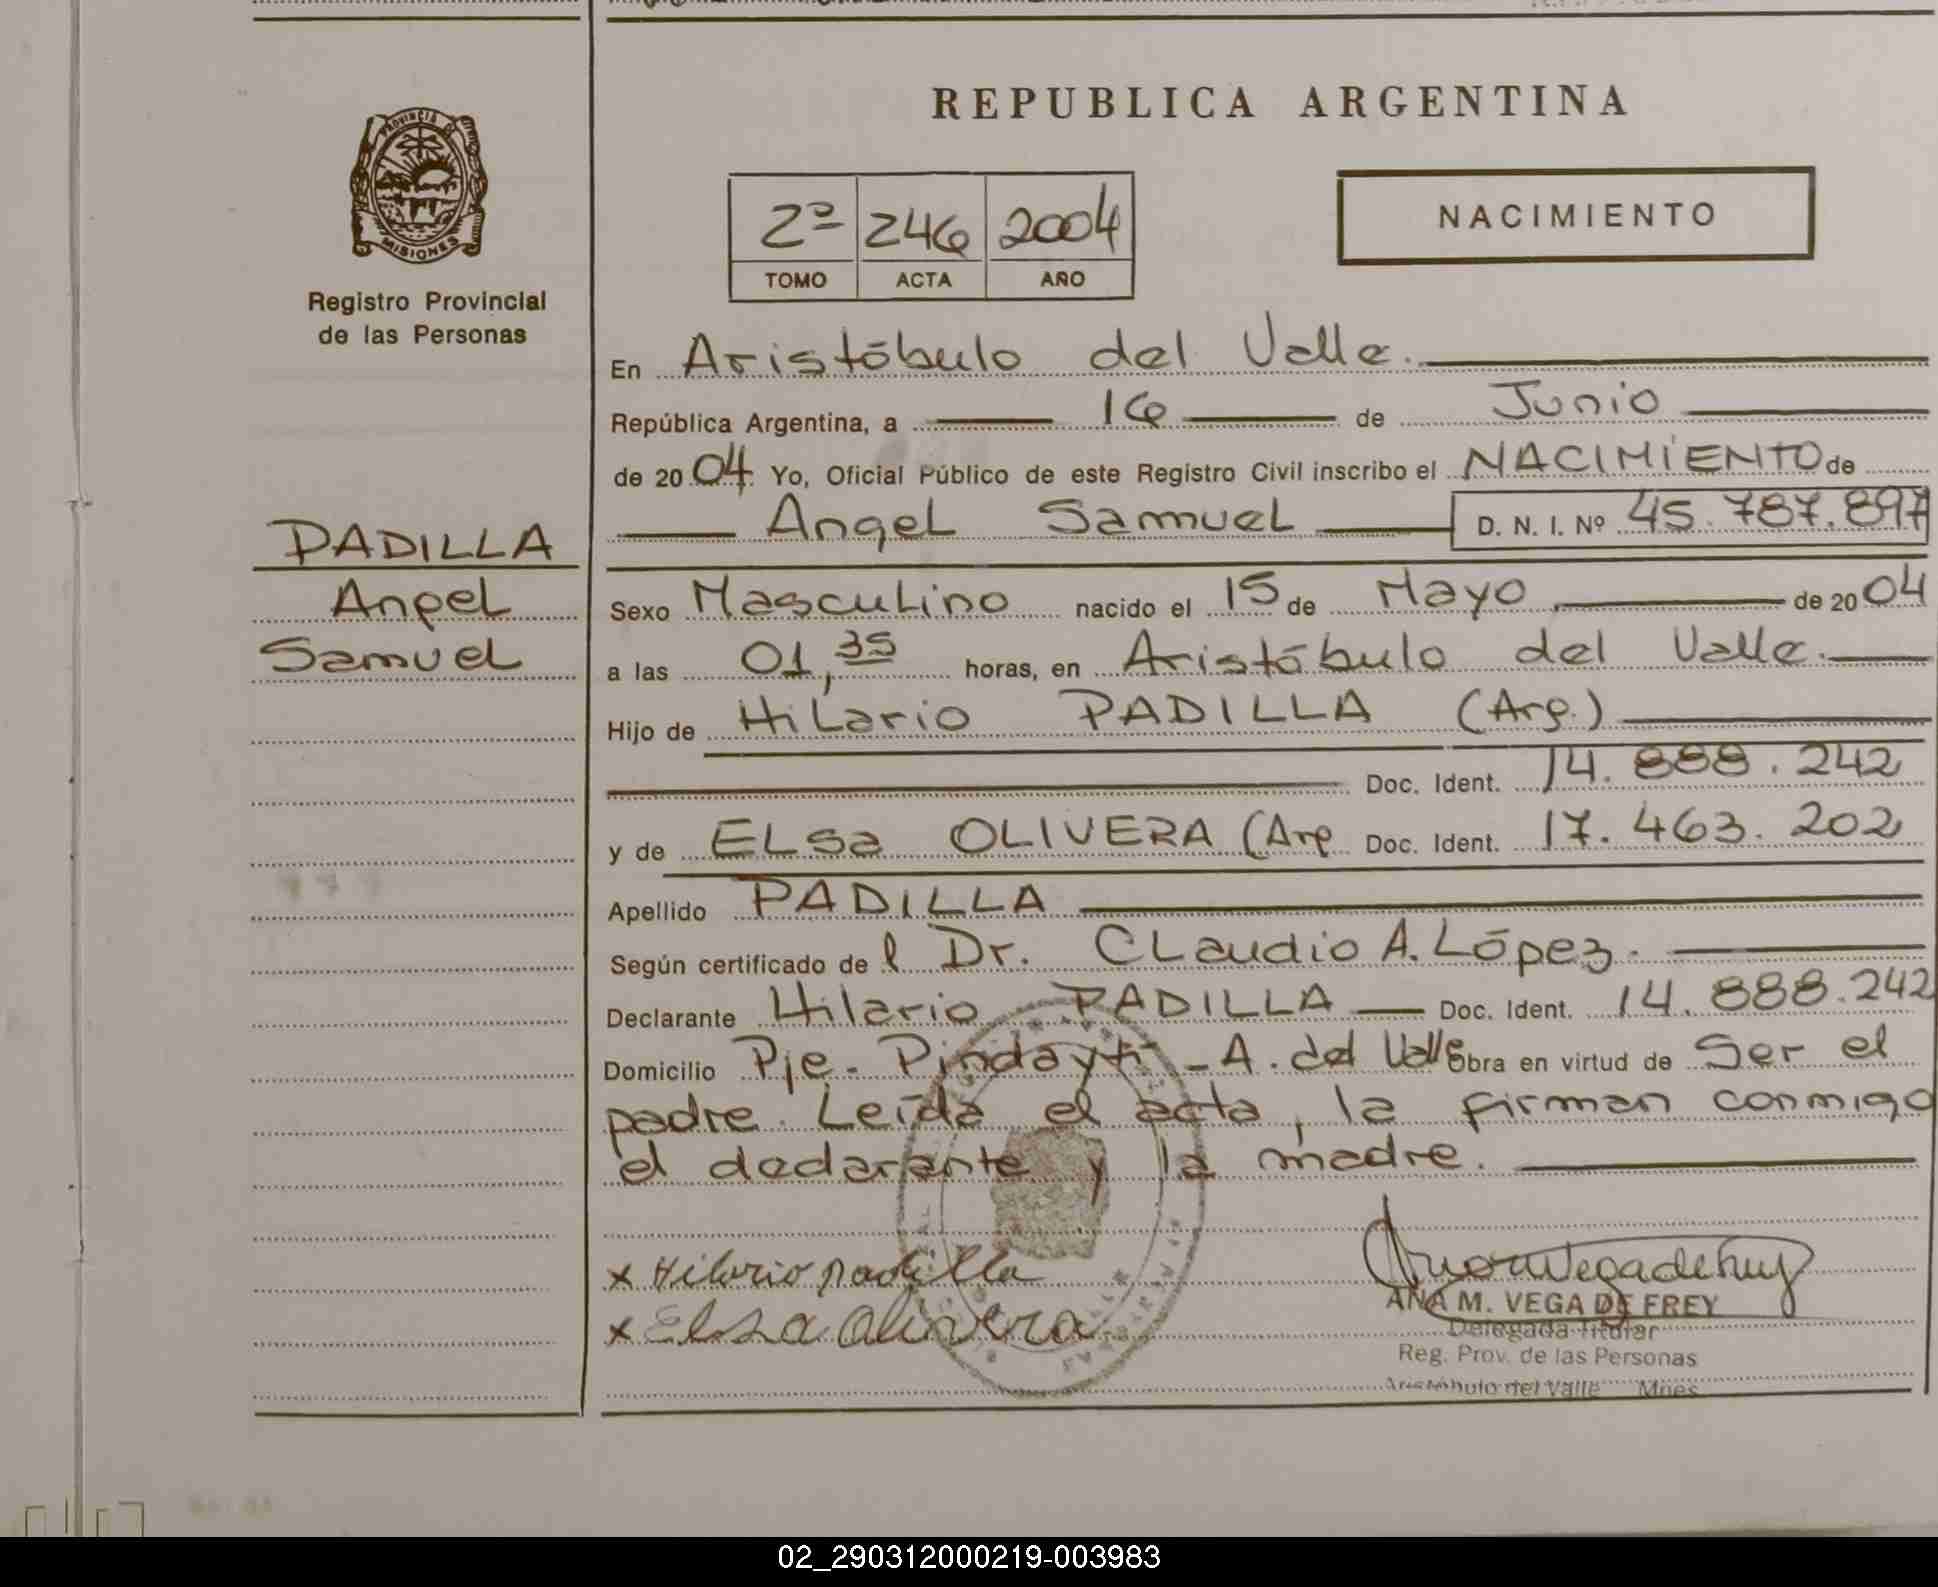 REPUBLICA ARGENTINA
PROVINCIA DE
MISIONES
Registro Provincial
de las Personas
2º 246 2004
TOMO ACTA AÑO
NACIMIENTO
En Aristóbulo del Valle.
República Argentina, a 16 de Junio
de 2004 Yo, Oficial Público de este Registro Civil inscribo el NACIMIENTO de
Angel Samuel D. N. I. Nº 45.787.897
PADILLA
Angel
Samuel
Sexo Masculino nacido el 15 de Mayo de 2004
a las 01,35 horas, en Aristóbulo del Valle.
Hijo de Hilario PADILLA (Arg.)
Doc. Ident. 14.888.242
y de Elsa OLIVERA (Arg Doc. Ident. 17.463.202
Apellido PADILLA
Según certificado del Dr. Claudio A. López.
Declarante Hilario PADILLA Doc. Ident. 14.888.242
Domicilio Pje. Pindaytí - A. del Valle Obra en virtud de Ser el
padre. Leída el acta, la firman conmigo
el declarante y la madre.
x Hilario padilla
x Elsa Olivera
ANA M. VEGA DE FREY
Delegada Titular
Reg. Prov. de las Personas
Aristóbulo del Valle Mnes
02_290312000219-003983